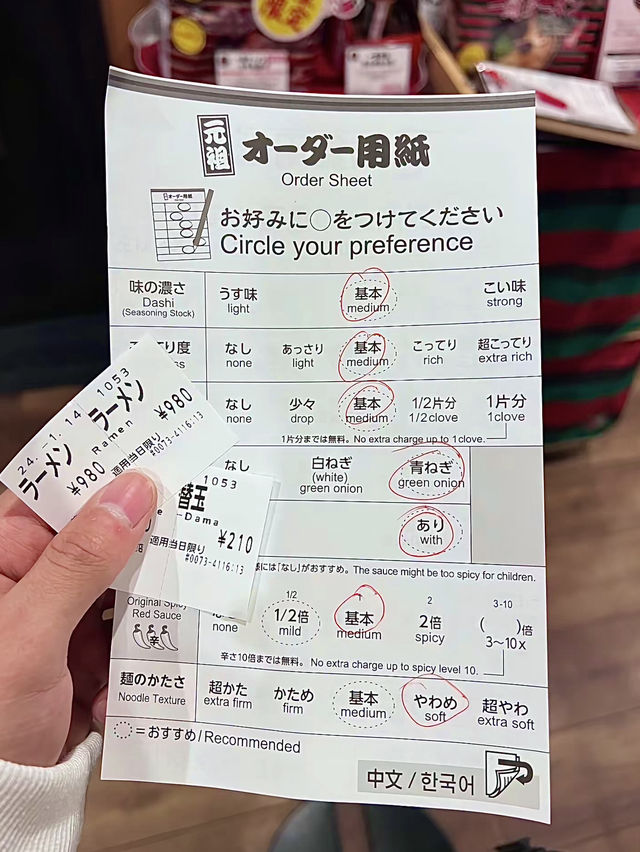 元祖 オーダー用紙
Order Sheet
お好みに○をつけてください
Circle your preference
味の濃さ
Dashi
(Seasoning Stock)
うす味 基本 こい味
light medium strong
り度 なし あっさり 基本 こってり 超こってり
none light medium rich extra rich
なし 少々 基本 1/2片分 1片分
none drop medium 1/2clove 1clove
1片分までは無料。No extra charge up to 1clove.
なし 白ねぎ 青ねぎ
(white) green onion
green onion
あり
with
には「なし」がおすすめ。The sauce might be too spicy for children.
Original Spicy
Red Sauce
辛
1/2 2 3-10
1/2倍 基本 2倍 ( )倍
none mild medium spicy 3～10x
辛さ10倍までは無料。No extra charge up to spicy level 10.
麺のかたさ
Noodle Texture
超かた かため 基本 やわめ 超やわ
extra firm firm medium soft extra soft
=おすすめ/Recommended
中文 / 한국어
24.-1.14 1053
ラーメン ラーメン
Ramen
¥980 ¥980
適用当日限り
#0073-4116:13
1053
替玉
-Dama
¥210
適用当日限り
#0073-4116:13